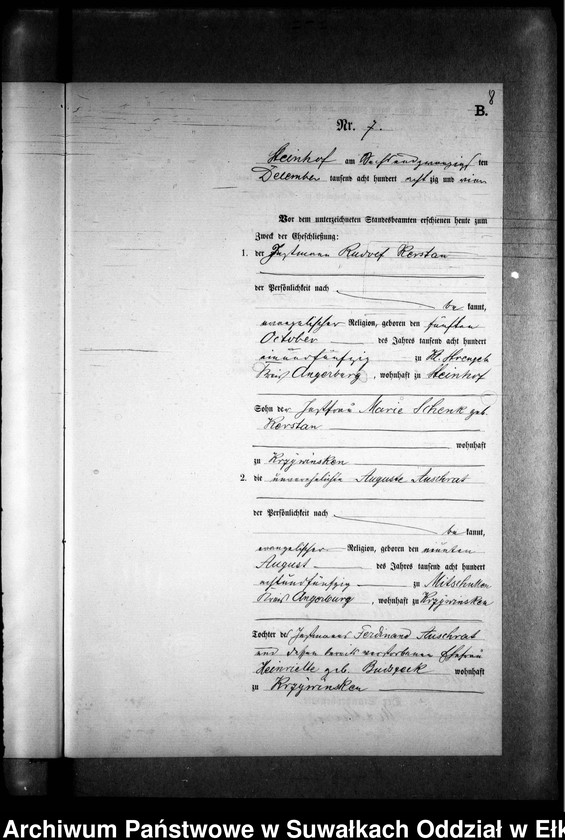 8
B.
Nr. 7.
Steinhof am Sechsundzwanzigsten
December tausend acht hundert achtzig und vier
Vor dem unterzeichneten Standesbeamten erschienen heute zum
Zweck der Eheschließung:
1. der Instmann Rudolf Kerstan
der Persönlichkeit nach
be kannt,
evangelischer Religion, geboren den fünften
October des Jahres tausend acht hundert
fünfzig zu Kl. Strengeln
Kreis Angerburg, wohnhaft zu Steinhof
Sohn der Instfrau Marie Schenk geb.
Kerstan
wohnhaft
zu Krzywinsken
2. die unverehelichte Auguste Auschrat
der Persönlichkeit nach
be kannt,
evangelischer Religion, geboren den neunten
August des Jahres tausend acht hundert
achtundfünfzig zu
Kreis Angerburg, wohnhaft zu Krzywinsken
Tochter des Instmanns Ferdinand Auschrat
und dessen bereits verstorbenen Ehefrau
Henriette geb. wohnhaft
zu Krzywinsken
Archiwum Państwowe w Suwałkach Oddział w Ełk